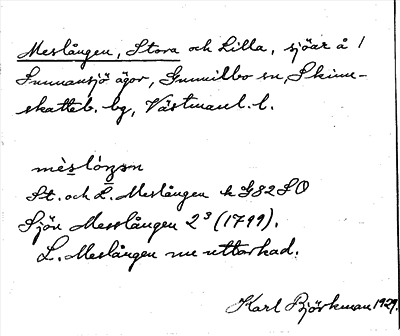 Meslången, Stora och Lilla, sjöar å
Sunnansjö ägor, Gunnilbo sn, Skinn-
skatteb. bg, Västmanl. l.
St. och L. Meslången k G82SO
Sjön Messlången 2³ (1799).
L. Meslången nu uttorkad.
Karl Björkman 1929.